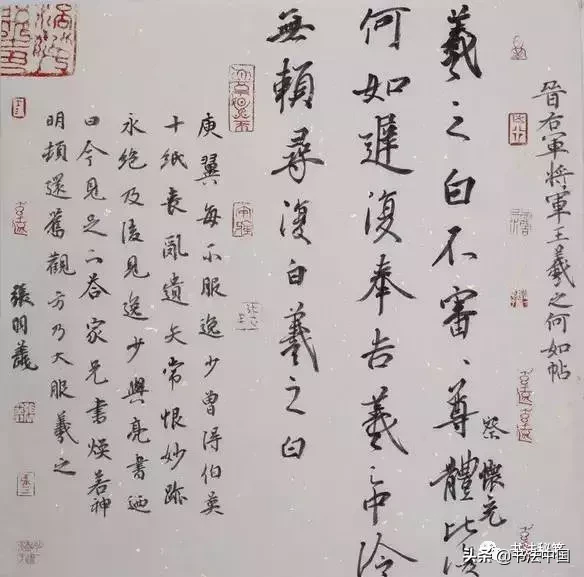 晉右軍將軍王羲之何如帖
羲之白不審、尊體比復
察
懷充
何如遲復奉告羲之中冷
無賴尋復白羲之白
庾翼每不服逸少曾得伯英
十紙喪亂遺失常恨妙跡
永絕及後見逸少與亮書廼
曰今見足下答家兄書煥若神
明頓還舊觀方乃大服羲之
張明義
书法秘笈
头条 @书法中国